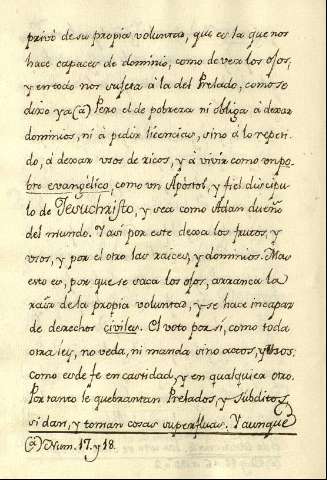 privó de su propia voluntad, que es la que nos
hace capaces de dominio, como de ver los ojos,
y en todo nos sujeta à la del Prelado, como se
dixo ya (a) Pero el de pobreza ni obliga à dexar
dominios, ni à pedir licencias, sino à lo repeti-
do, à dexar usos de ricos, y à vivir como un po-
bro evangélico, como un Apóstol, y fiel discipu-
lo de Jesuchristo, y sea como Adan dueño
del mundo. Y asi por este dexa los frutos, y
usos, y por el otro las raices, y dominios. Mas
esto es, por que se saca los ojos, arranca la
raiz de la propia voluntad, y se hace incapaz
de derechos civiles. El voto por sí, como toda
otra ley, no veda, ni manda sino actos, y usos:
como es de fe en castidad, y en qualquier otro.
Por tanto le quebrantan Prelados, y Subditos,
si dan, y toman cosas superfluas. Y aunque
(a) Num. 17. y 18.